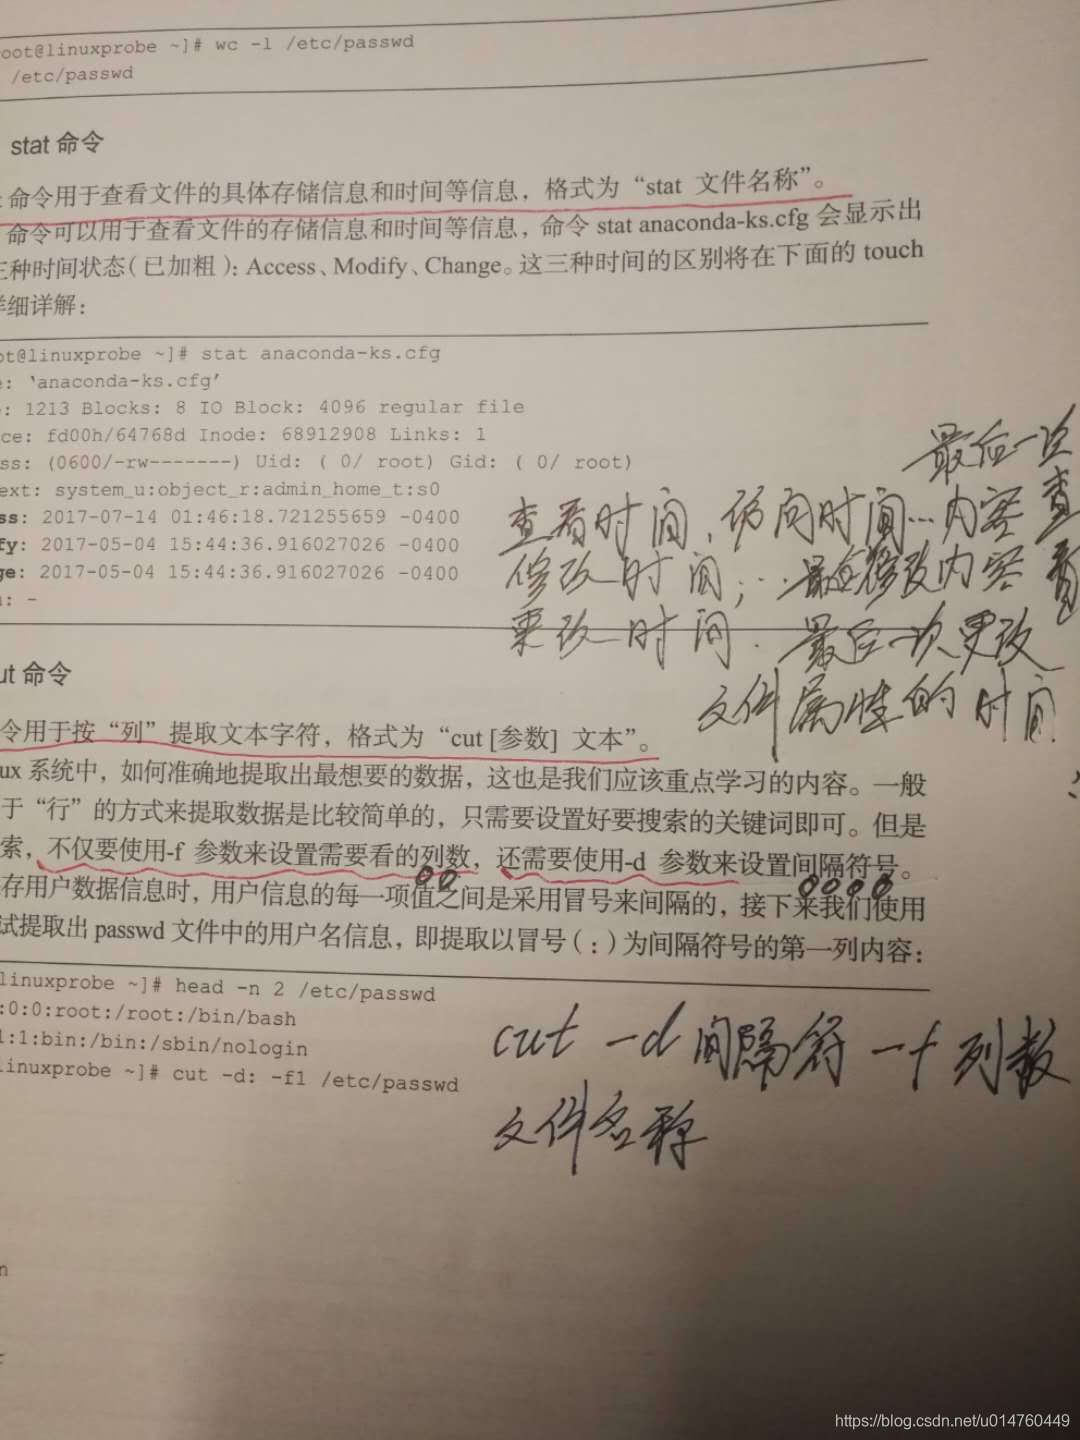 oot@linuxprobe ~]# wc -l /etc/passwd
/etc/passwd
stat 命令
命令用于查看文件的具体存储信息和时间等信息，格式为“stat 文件名称”。
命令可以用于查看文件的存储信息和时间等信息，命令 stat anaconda-ks.cfg 会显示出
三种时间状态（已加粗）：Access、Modify、Change。这三种时间的区别将在下面的 touch
详细详解：
ot@linuxprobe ~]# stat anaconda-ks.cfg
e: ‘anaconda-ks.cfg’
: 1213 Blocks: 8 IO Block: 4096 regular file
ce: fd00h/64768d Inode: 68912908 Links: 1
ss: (0600/-rw-------) Uid: ( 0/ root) Gid: ( 0/ root)
ext: system_u:object_r:admin_home_t:s0
ss: 2017-07-14 01:46:18.721255659 -0400
fy: 2017-05-04 15:44:36.916027026 -0400
ge: 2017-05-04 15:44:36.916027026 -0400
: -
最后一次
查看时间，访问时间…内容查看
修改时间；…最后修改内容
更改时间．最后一次更改
文件属性的时间
ut 命令
令用于按“列”提取文本字符，格式为“cut [参数] 文本”。
ux 系统中，如何准确地提取出最想要的数据，这也是我们应该重点学习的内容。一般
于“行”的方式来提取数据是比较简单的，只需要设置好要搜索的关键词即可。但是
索，不仅要使用-f 参数来设置需要看的列数，还需要使用-d 参数来设置间隔符号。
存用户数据信息时，用户信息的每一项值之间是采用冒号来间隔的，接下来我们使用
试提取出 passwd 文件中的用户名信息，即提取以冒号（:）为间隔符号的第一列内容：
linuxprobe ~]# head -n 2 /etc/passwd
:0:0:root:/root:/bin/bash
1:1:bin:/bin:/sbin/nologin
linuxprobe ~]# cut -d: -f1 /etc/passwd
cut -d 间隔符 -f 列数
文件名称
n
https://blog.csdn.net/u014760449